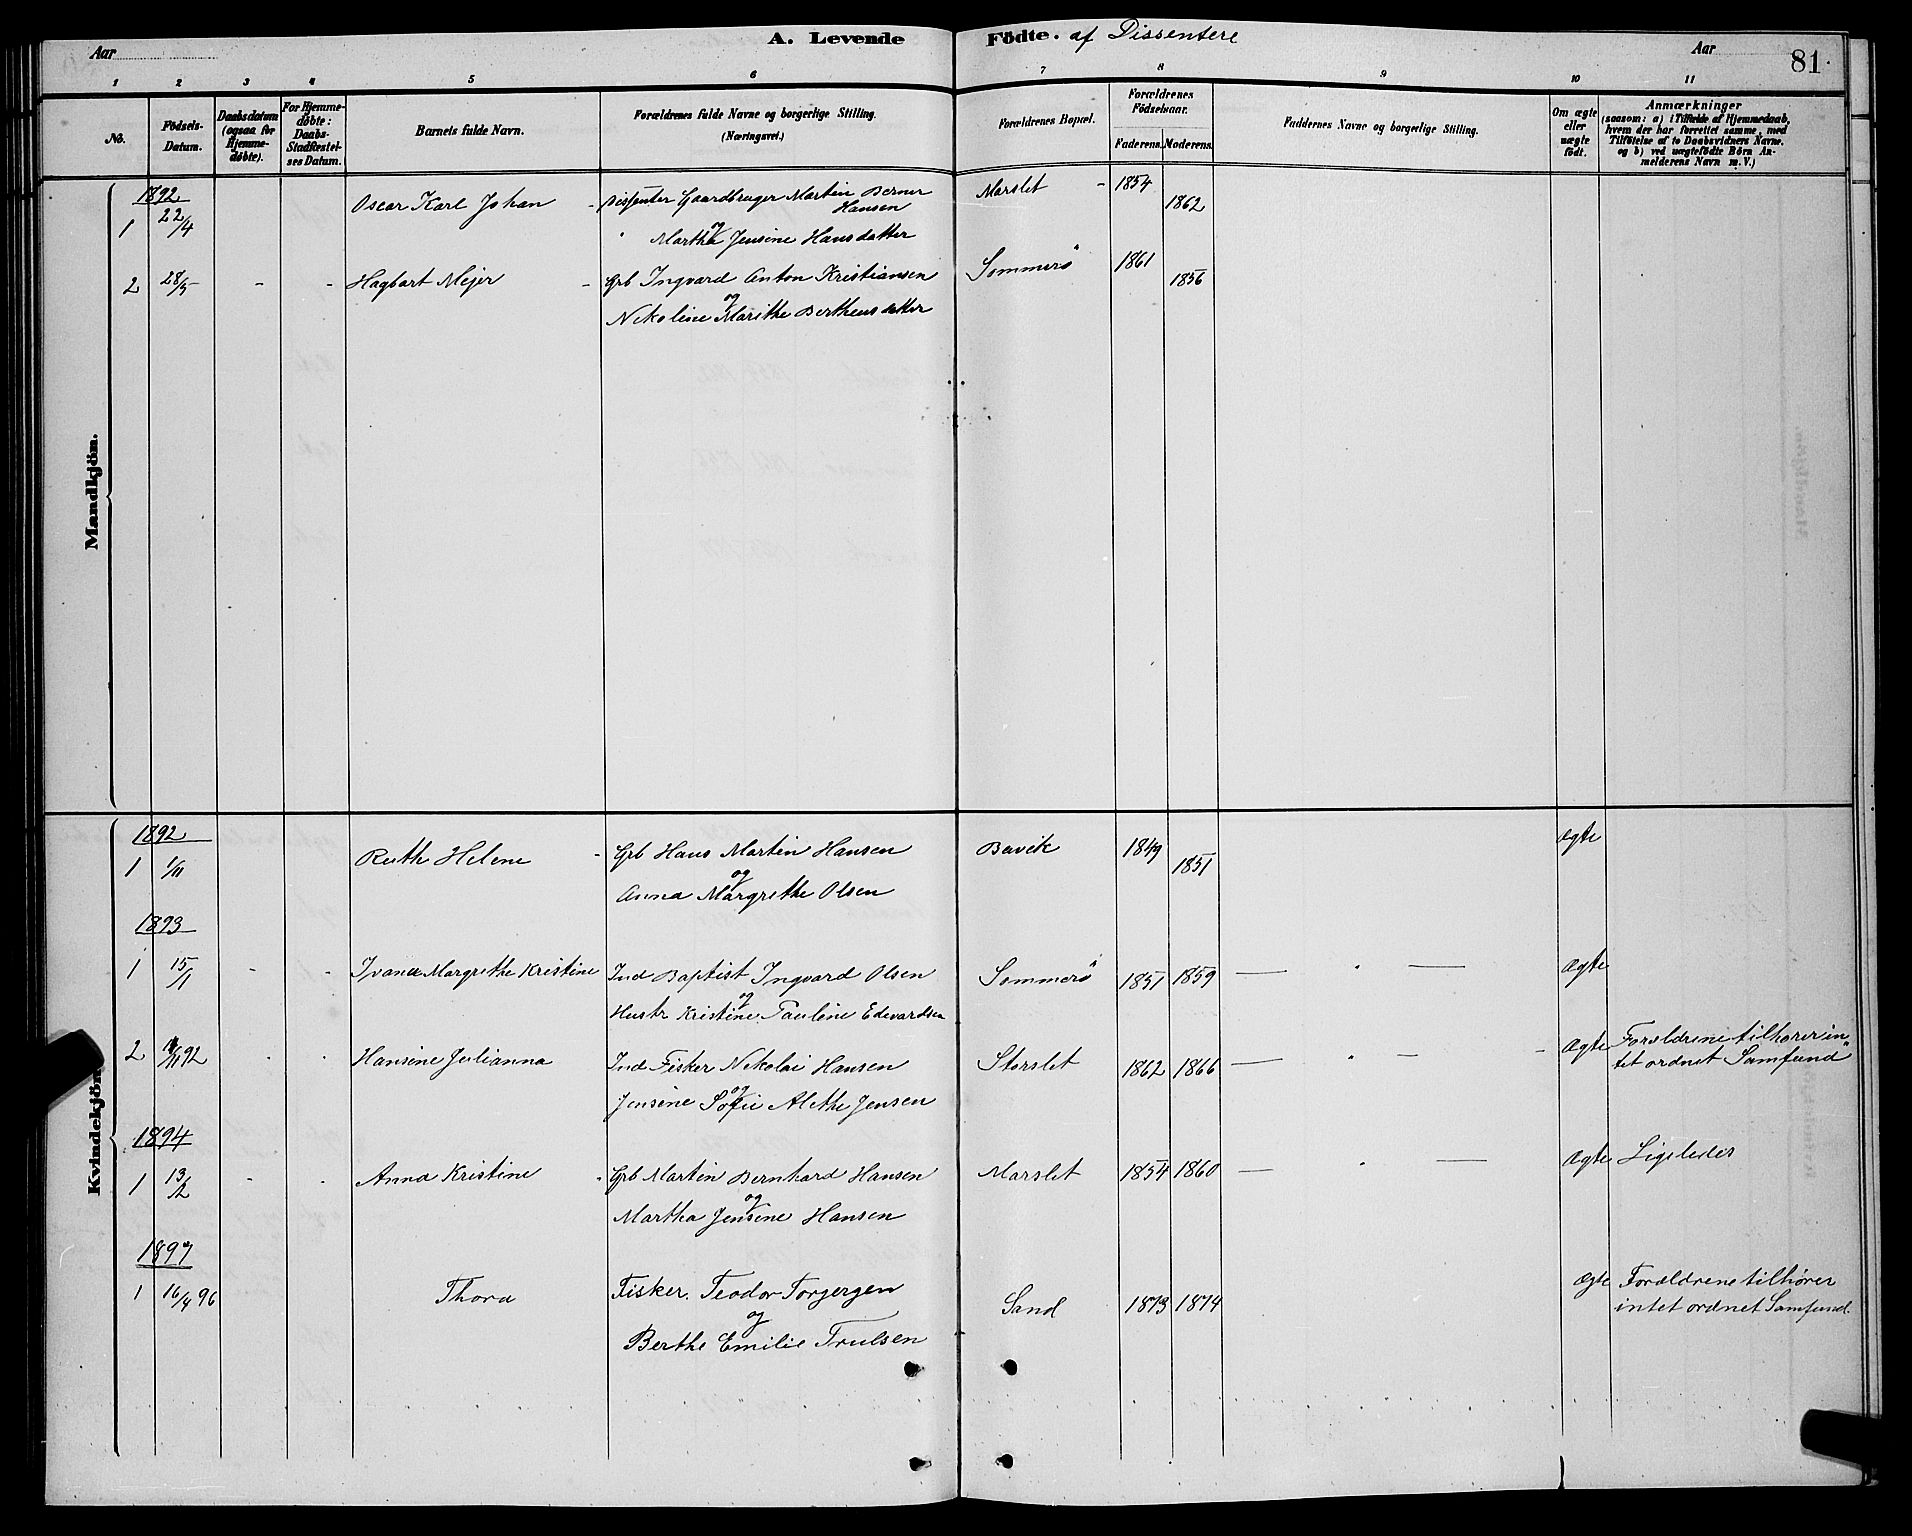 Aar
A. Levende Födte. af Dissentere
Aar
81.
1 2 3 4 5 6 7 8 9 10 11
No.
Födsels-Datum.
Daabsdatum (ogsaa for Hjemme-döbte).
For Hjemme-döbte: Daabs-Stadfæstel-ses Datum.
Barnets fulde Navn.
Forældrenes fulde Navne og borgerlige Stilling.
(Næringsvei.)
Forældrenes Bopæl.
Forældrenes Födselsaar.
Faderens. Moderens.
Faddernes Navne og borgerlige Stilling.
Om ægte eller uægte födt.
Anmærkninger
(saasom: a) i Tilfælde af Hjemmedaab,
hvem der har forrettet samme, med
Tilföielse af to Daabsvidners Navne.
og b) ved uægtefödte Börn An-
melderens Navn m. V.)
Mandkjön.
1892
1 22/4 Oscar Karl Johan - Dissenter Gaardbruger Martin Berner Hansen Marslet - 1854 1862
og
Martha Jensine Hansdatter
2 28/5 - - Hagbart Mejer - Grb Ingvard Anton Kristiansen Sommerö 1861 1856
og
Nikoline Marithe Berthensdatter
Kvindekjön.
1892
1 1/11 Ruth Helene - Grb Hans Martin Hansen Bavik 1849 1851 Ægte
og
Anna Margrethe Olsen
1893
1 15/1 - - Ivanna Margrethe Kristine Ind Baptist Ingvard Olsen Sommerö 1851 1859 — " — Ægte
og
Hustr Kristine Pauline Edevardsen
2 /11 92 Hansine Julianna Ind Fisker Nikolai Hansen Storslet 1862 1866 — " — - Ægte Forældrene tilhører in"
tet ordnet Samfund
og
Jensine Sofie Alethe Jensen
1894
1 13/2 - Anna Kristine Grb Martin Bernhard Hansen Marslet 1854 1860 — " — Ægte Ligeledes
og
Martha Jensine Hansen
1897
1 16/4 96 Thora Fisker. Teodor Torgergen Sand 1873 1874 Ægte Forældrene tilhører
intet ordnet Samfund.
og
Berthe Emilie Trulsen